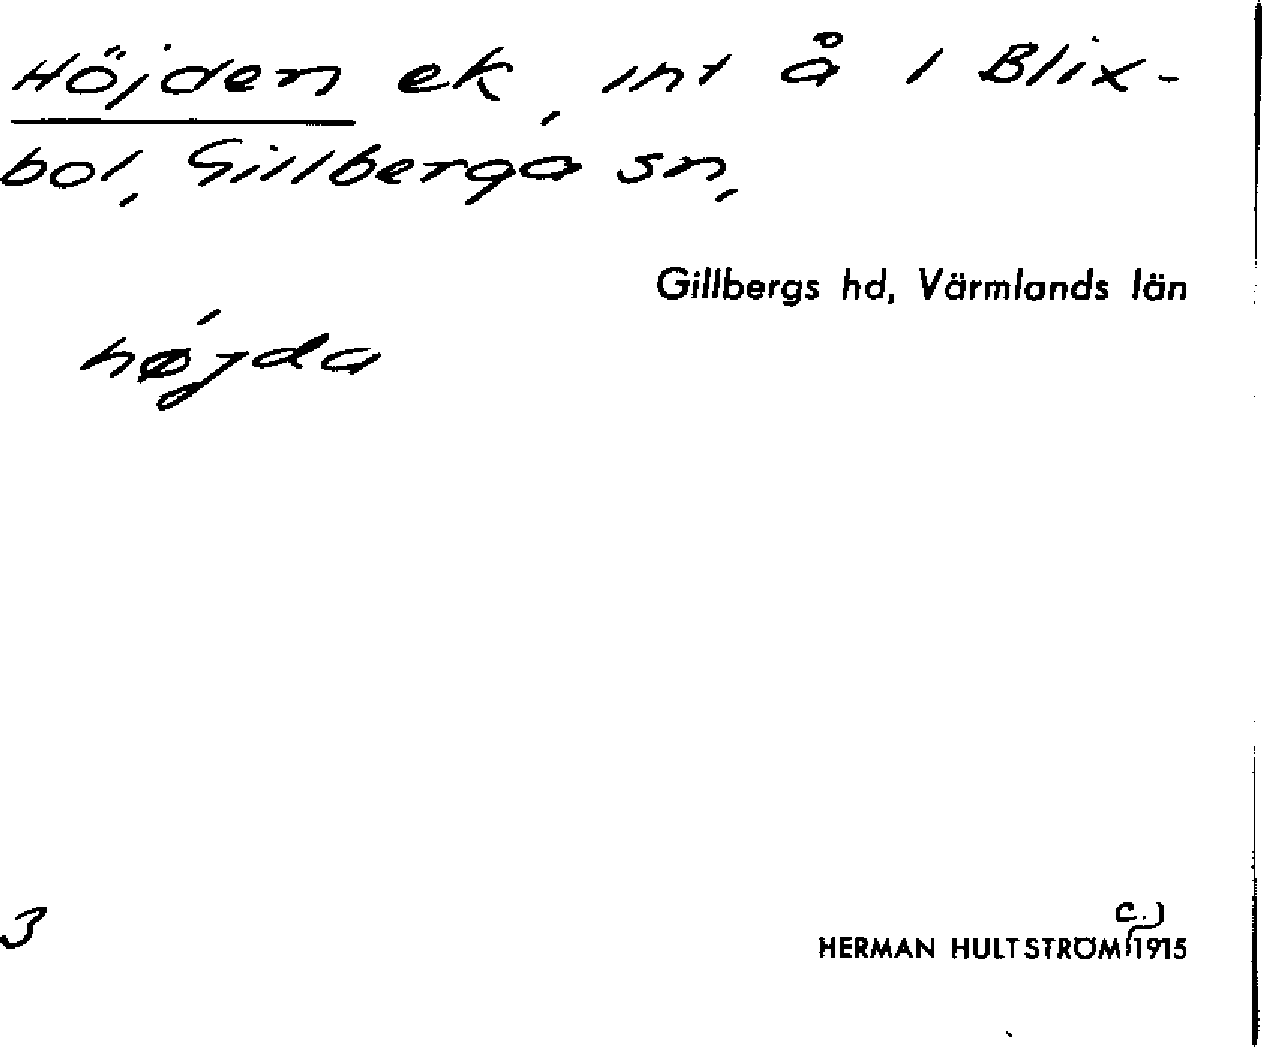 Höjden ek, int å i Blix-
bol, Gillberga sn,
Gillbergs hd, Värmlands län
højda
3
c.)
HERMAN HULTSTRÖM 1915